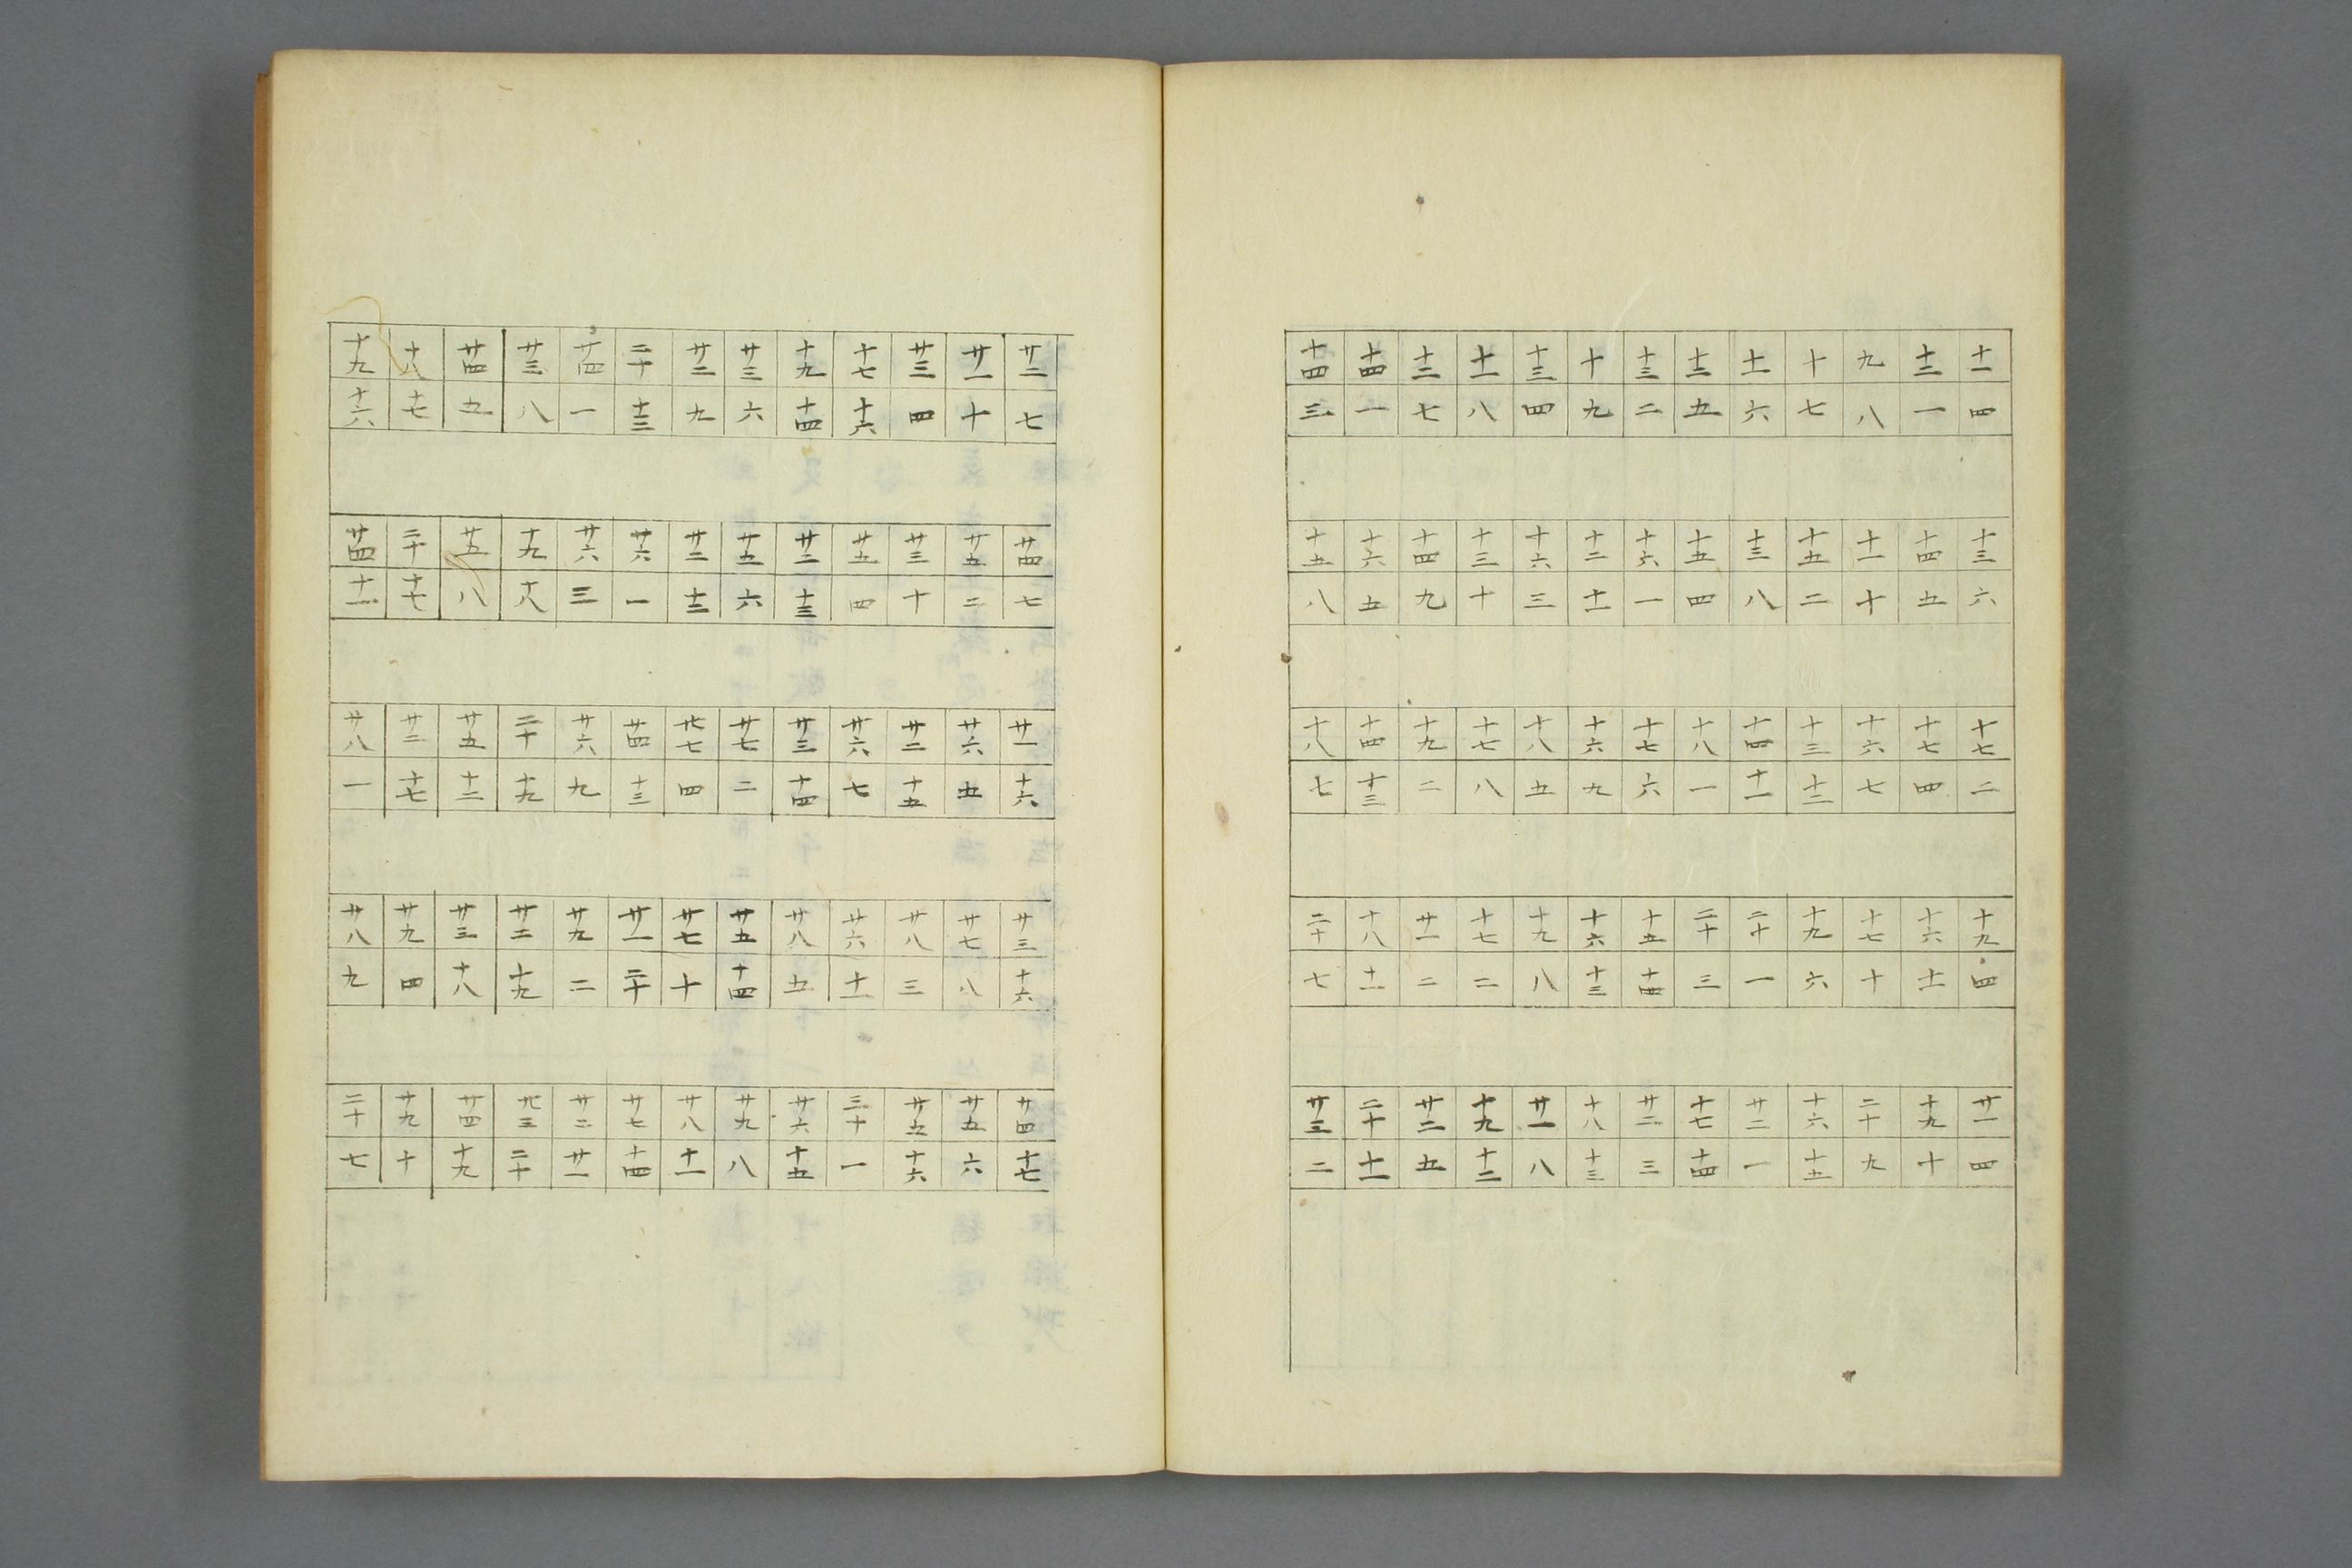 十一 十二 九 十 十一 十二 十三 十 十三 十一 十二 十四 十四
四 一 八 七 六 五 二 九 四 八 七 一 三
十三 十四 十一 十五 十三 十五 十六 十二 十六 十三 十四 十六 十五
六 五 十 二 八 四 一 十一 三 十 九 五 八
十七 十七 十六 十三 十四 十八 十七 十六 十八 十七 十九 十四 十八
二 四 七 十二 十一 一 六 九 五 八 二 十三 七
十九 十六 十七 十九 二十 二十 十五 十六 十九 十七 廿一 十八 二十
四 十一 十 六 一 三 十四 十三 八 二 二 十一 七
廿一 十九 二十 十六 廿二 十七 廿二 十八 廿一 十九 廿二 二十 廿三
四 十 九 十五 一 十四 三 十三 八 十二 五 十一 二
廿二 廿一 廿三 十七 十九 廿三 廿二 二十 廿四 廿三 廿四 十八 十九
七 十 四 十六 十四 六 九 十三 一 八 五 十七 十六
廿四 廿五 廿三 廿五 廿二 廿五 廿三 廿六 廿六 十九 廿五 二十 廿四
七 二 十 四 十三 六 十二 一 三 十八 八 十七 十一
廿一 廿六 廿二 廿六 廿三 廿七 廿七 廿四 廿六 二十 廿五 廿二 廿八
十六 五 十五 七 十四 二 四 十三 九 十九 十二 十七 一
廿三 廿七 廿八 廿六 廿八 廿五 廿七 廿一 廿九 廿二 廿三 廿九 廿八
十六 八 三 十一 五 十四 十 二十 二 十九 十八 四 九
廿四 廿五 廿五 三十 廿六 廿九 廿八 廿七 廿二 廿三 廿四 廿九 二十
十七 六 十六 一 十五 八 十一 十四 廿一 二十 十九 十 七